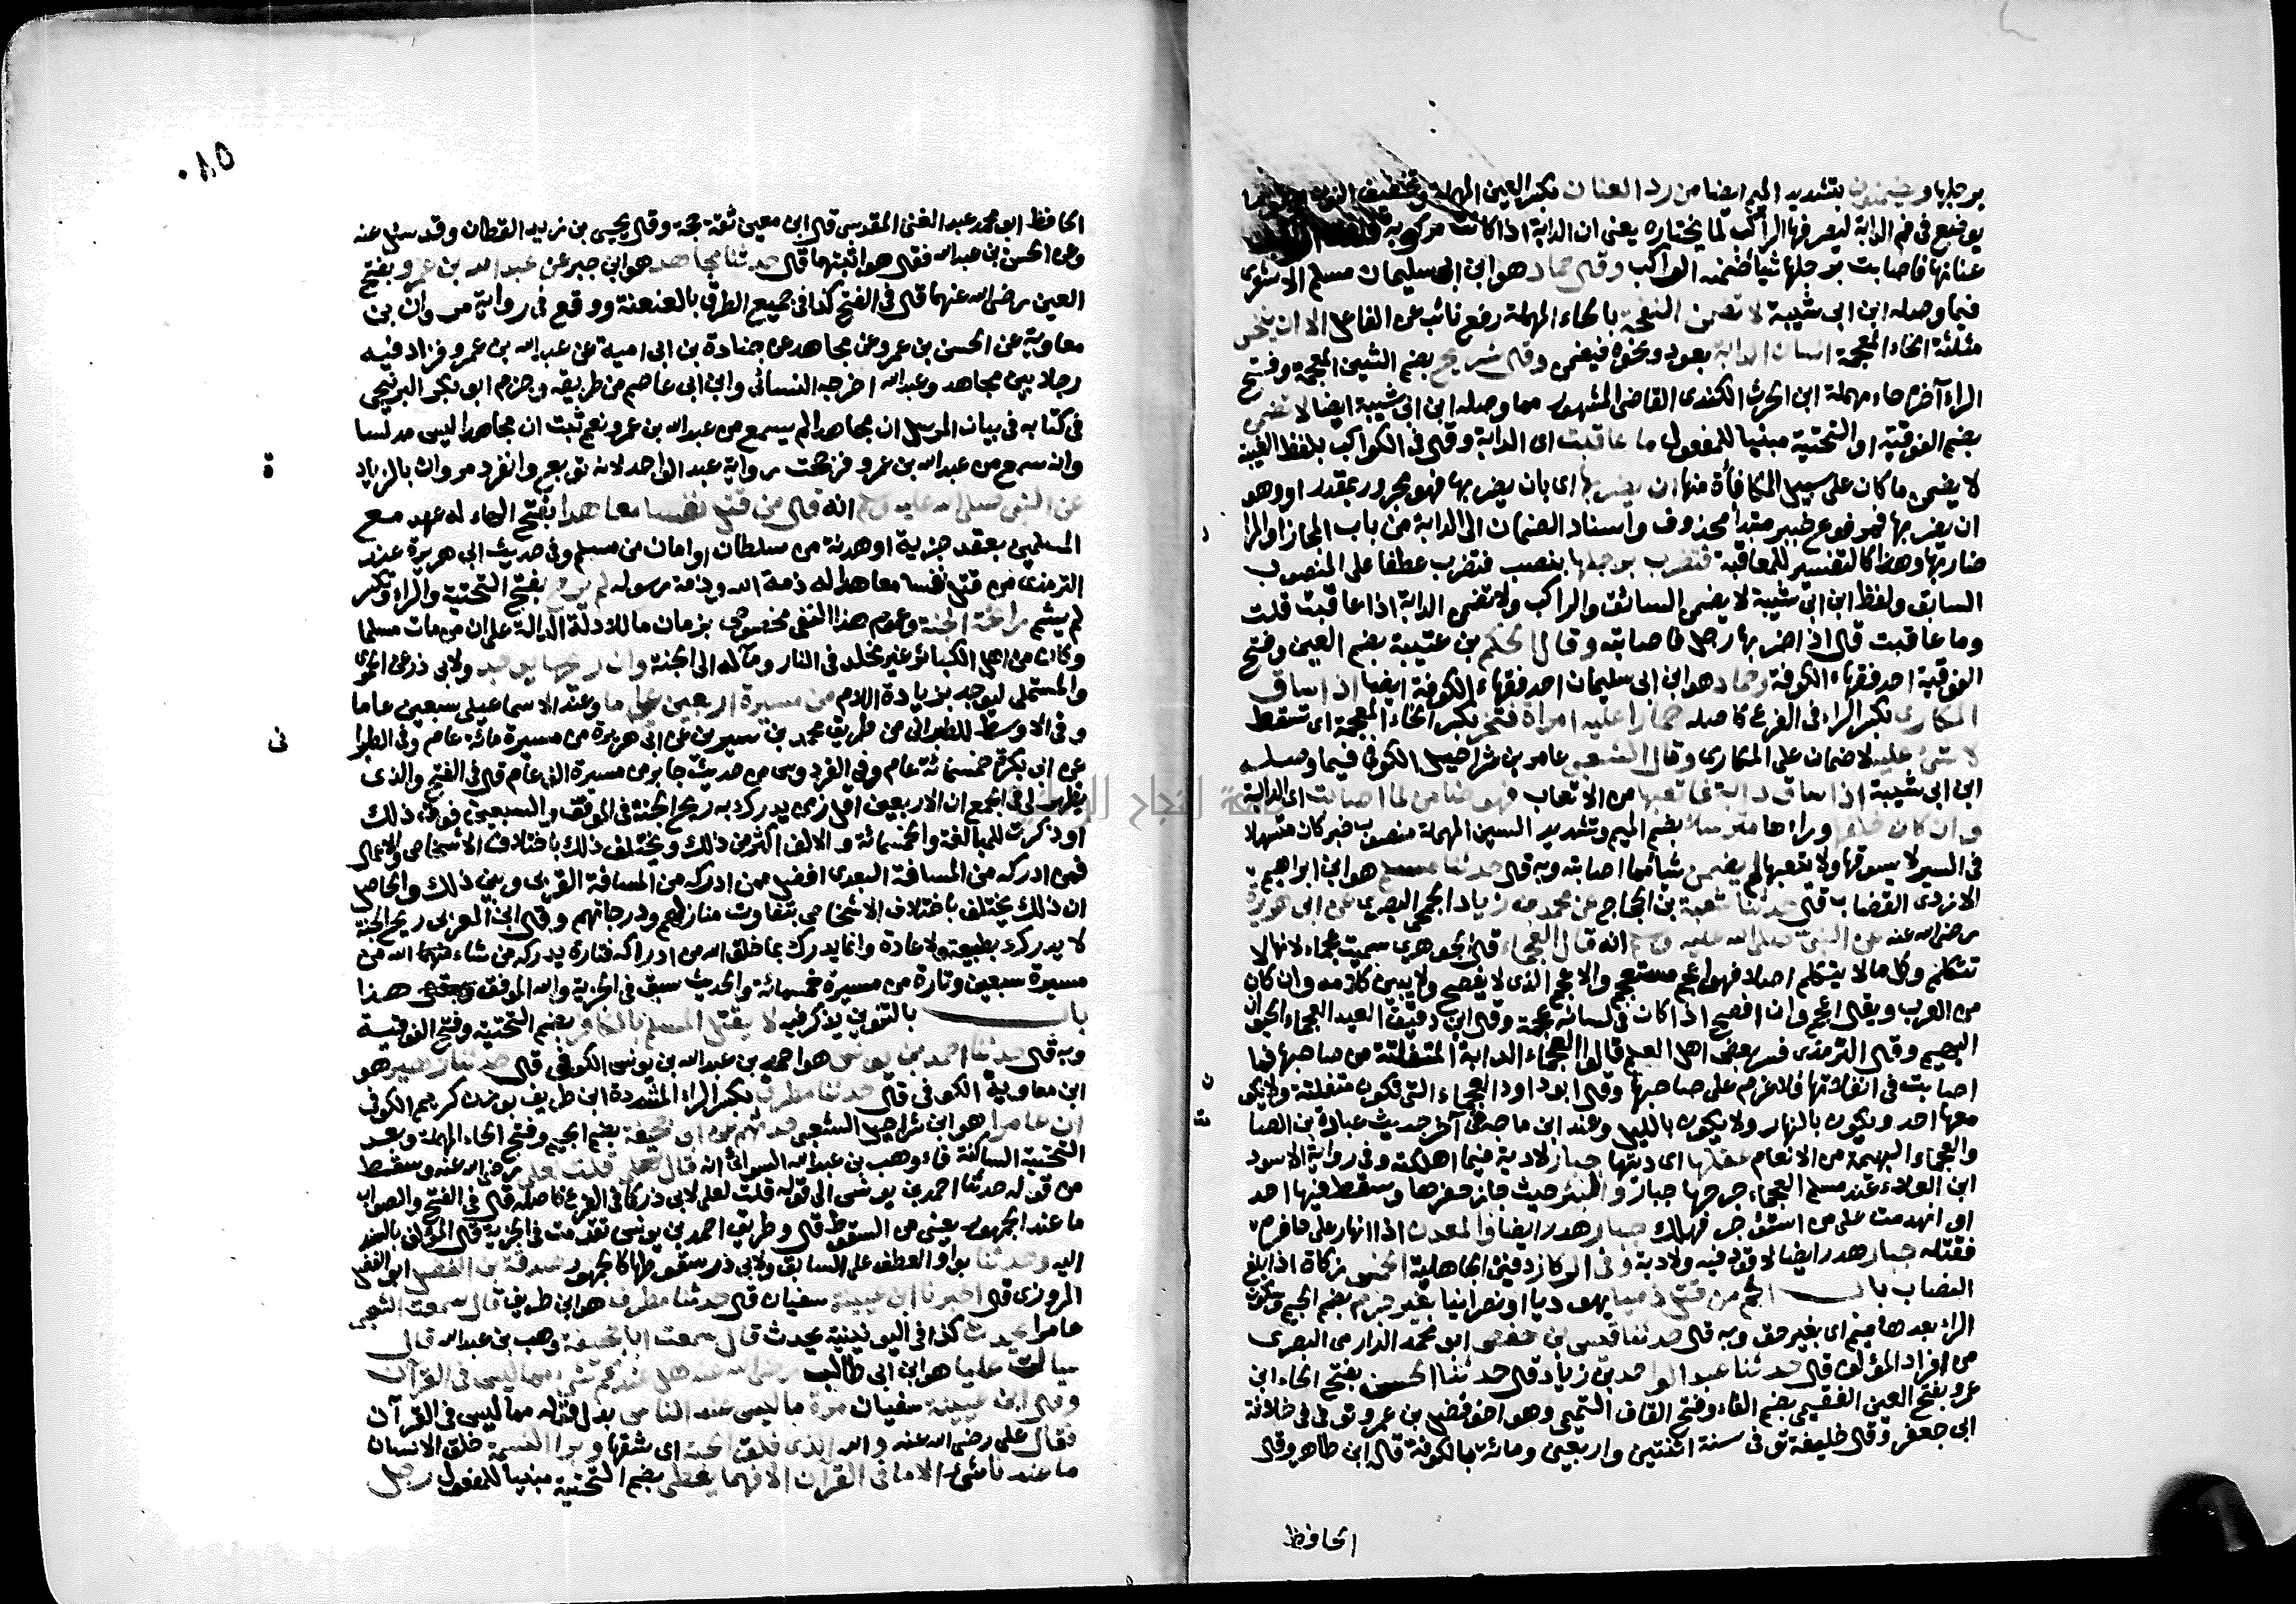 برجلها ويضمنون بتشديد الميم ايضا من رد العنان بكسر العين المهملة وتخفيف النون
يوضع في فم الدابة ليصرفها الراكب لما يختاره يعني ان الدابة اذا كانت مركوبة
عنانها فاصابت برجلها شيأ ضمنه الراكب وقال حماد هو ابن ابي سليمان مسلم الاشعري
فيما وصله ابن ابي شيبة لا تضمن النفحة بالحاء المهملة رفع نائب عن الفاعل الا ان ينخس
مثلثة الخاء المعجمة انسان الدابة بعود ونحوه فيضمن وقال شريح بضم الشين المعجمة وفتح
الراء آخره حاء مهملة ابن الحرث الكندي القاضي المشهور مما وصله ابن ابي شيبة ايضا لا تضمن
بضم الفوقية او التحتية مبنيا للمفعول ما عاقبت اى الدابة وقال في الكواكب بلفظ الغيبة
لا يضمن ما كان على سبيل المكافأة منها ان يضربها اى بان يضربها فهو مجرور بمقدر او وهو
ان يضربها فمرفوع خبر مبتدأ محذوف واسناد الضمان الى الدابة من باب المجاز او المراد
ضاربها وهذا كالتفسير للمعاقبة فتضرب برجلها بنصب فتضرب عطفا على المنصوب
السابق ولفظ ابن ابي شيبة لا يضمن السائق والراكب ولا تضمن الدابة اذا عاقبت قلت
وما عاقبت قال اذا ضربها رجل فاصابته وقال الحكم بن عتيبة بضم العين وفتح
الفوقية احد فقهاء الكوفة وحماد هو ابن ابي سليمان احد فقهاء الكوفة ايضا اذا ساق
المكاري بكسر الراء في الفرع كاصله حمارا عليه امرأة فتخر بكسر الخاء المعجمة اى تسقط
لا شئ عليه لا ضمان على المكاري وقال الشعبي عامر بن شراحيل الكوفي فيما وصله
ابن ابي شيبة اذا ساق دابة فاتعبها من الاتعاب فهو ضامن لما اصابت اى الدابة
وان كان خلفها وراءها مترسلا بضم الميم وتشديد السين المهملة منصوب خبر كان متسهلا
في السير لا يسوقها ولا يتعبها لم يضمن شيأ مما اصابته وبه قال حدثنا مسلم هو ابن ابراهيم
الازدي القصاب قال حدثنا شعبة بن الحجاج عن محمد بن زياد الجمحي البصري عن ابي هريرة
رضي الله عنه عن النبي صلى الله عليه وسلم انه قال العجماء قال الجوهري سميت عجماء لانها لا
تتكلم وكل ما لا يتكلم اصلا فهو اعجم مستعجم والاعجم الذي لا يفصح ولا يبين كلامه وان كان
من العرب ويقال اعجم وان افصح اذا كان في لسانه عجمة وقال ابن دقيق العيد العجماء الحيوان
البهيم وقال الترمذي فسر بعض اهل العلم قالوا العجماء الدابة المنفلتة من صاحبها فما
اصابت في انفلاتها فلا غرم على صاحبها وقال ابو داود العجماء التي تكون منفلتة ولا يكون
معها احد وتكون بالنهار ولا يكون بالليل وعند ابن ماجه في آخر حديث عبادة بن الصامت
والعجماء البهيمة من الانعام عقلها اى ديتها جبار لا دية فيما اهلكته وفي رواية الاسود
ابن العلاء عند مسلم العجماء جرحها جبار والبئر حيث جاز حفرها وسقط فيها احد
او انهدمت على من استؤجر فهلك جبار هدر ايضا والمعدن اذا انهار على حافره
فقتله جبار هدر ايضا لا قود فيه ولا دية وفي الركاز دفين الجاهلية الخمس زكاة اذا بلغ
النصاب باب اثم من قتل ذميا يهوديا او نصرانيا بغير جرم بضم الجيم وسكون
الراء بعدها ميم اى بغير حق وبه قال حدثنا قيس بن حفص ابو محمد الدارمي البصري
من افراد المؤلف قال حدثنا عبد الواحد بن زياد قال حدثنا الحسن بفتح الحاء ابن
عمرو بفتح العين الفقيمي بضم الفاء وفتح القاف التميمي وهو اخو فضيل بن عمرو توفي في خلافة
ابي جعفر وقال خليفة توفي سنة اثنتين واربعين ومائة بالكوفة قاله ابن طاهر وقال
الحافظ
٥٨٠
الحافظ ابو محمد عبد الغني المقدسي قال ابن معين ثقة حجة وقال يحيى بن زيد القطان وقد سئل عنه
وعن الحسن بن عبد الله فقال هو اثبتهما قال حدثنا مجاهد هو ابن جبر عن عبد الله بن عمرو بفتح
العين رضي الله عنهما قال في الفتح كذا في جميع الطرق بالعنعنة ووقع في رواية مروان بن
معاوية عن الحسن بن عمرو عن مجاهد عن جنادة بن ابي امية عن عبد الله بن عمرو فزاد فيه
رجلا بين مجاهد وعبد الله اخرجه النسائي وابن ابي عاصم من طريقه وجزم ابو بكر البرديجي
في كتابه في بيان المرسل ان مجاهدا لم يسمع من عبد الله بن عمرو نعم ثبت ان مجاهدا ليس مدلسا
وانه سمع من عبد الله بن عمرو فرجحت رواية عبد الواحد لانه توبع وانفرد مروان بالزيادة
عن النبي صلى الله عليه وسلم انه قال من قتل نفسا معاهدا بفتح الهاء له عهد مع
المسلمين بعقد جزية او هدنة من سلطان او امان من مسلم وفي حديث ابي هريرة عند
الترمذي من قتل نفسا معاهدا له ذمة الله وذمة رسوله لم يرح بفتح التحتية والراء وتكسر
لم يشم رائحة الجنة وعموم هذا النفي مخصوص بزمان ما للادلة الدالة على ان من مات مسلما
وكان من اهل الكبائر غير مخلد في النار ومآله الى الجنة وان ريحها يوجد ولابي ذر عن الحموي
والمستملي ليوجد بزيادة اللام من مسيرة اربعين عاما وعند الاسماعيلي سبعين عاما
وفي الاوسط للطبراني من طريق محمد بن سيرين عن ابي هريرة من مسيرة مائة عام وفي الطبراني
عن ابي بكرة خمسمائة عام وفي الفردوس من حديث جابر من مسيرة الف عام قال في الفتح والذي
يظهر لي في الجمع ان الاربعين اقل زمن يدرك به ريح الجنة في الموقف والسبعين فوق ذلك
او ذكرت للمبالغة والخمسمائة والالف اكثر من ذلك ويختلف ذلك باختلاف الاشخاص والاعمال
فمن ادركه من المسافة البعدى افضل ممن ادركه من المسافة القربى وبين ذلك والحاصل
ان ذلك يختلف باختلاف الاشخاص بتفاوت منازلهم ودرجاتهم وقال ابن العربي ريح الجنة
لا يدرك بطبيعة ولا عادة وانما يدرك بما خلق الله من ادراكه فتارة يدركه من شاء الله من
مسيرة سبعين وتارة من مسيرة خمسمائة والحديث سبق في الجزية والله الموفق هذا
باب بالتنوين يذكر فيه لا يقتل المسلم بالكافر بضم التحتية وفتح الفوقية
وبه قال حدثنا احمد بن يونس هو احمد بن عبد الله بن يونس الكوفي قال حدثنا زهير هو
ابن معاوية الكوفي قال حدثنا مطرف بكسر الراء المشددة ابن طريف بوزن كريم الكوفي
ان عامرا هو ابن شراحيل الشعبي حدثهم عن ابي جحيفة بضم الجيم وفتح الحاء المهملة وبعد
التحتية الساكنة فاء وهب بن عبد الله السوائي انه قال قلت لعلي رضي الله عنه وسقط
من قوله حدثنا احمد بن يونس الى قوله قلت لعلي لابي ذر كما في الفرع كاصله قال في الفتح والصواب
ما عند الجمهور يعني من السقوط قال وطريق احمد بن يونس تقدمت في الجزية قال المؤلف بالسند
اليه وحدثنا بواو العطف على السابق ولابي ذر سقوطها كالجمهور صدقة بن الفضل ابو الفضل
المروزي قال اخبرنا ابن عيينة سفيان قال حدثنا مطرف هو ابن طريف قال سمعت الشعبي
عامرا يحدث كذا في اليونينية يحدث قال سمعت ابا جحيفة وهب بن عبد الله قال
سالت عليا هو ابن ابي طالب رضي الله عنه هل عندكم شئ مما ليس في القرآن
وقال ابن عيينة سفيان مرة ما ليس عند الناس بدل قوله مما ليس في القرآن
فقال علي رضي الله عنه والله الذي فلق الحبة اى شقها وبرا النسمة خلق الانسان
ما عندنا شئ الا ما في القرآن الا فهما يعطى بضم التحتية مبنيا للمفعول رجل